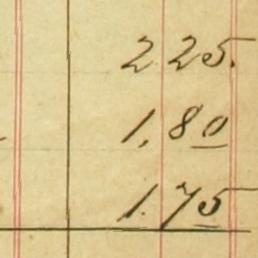 2 25.
1.80
1.75